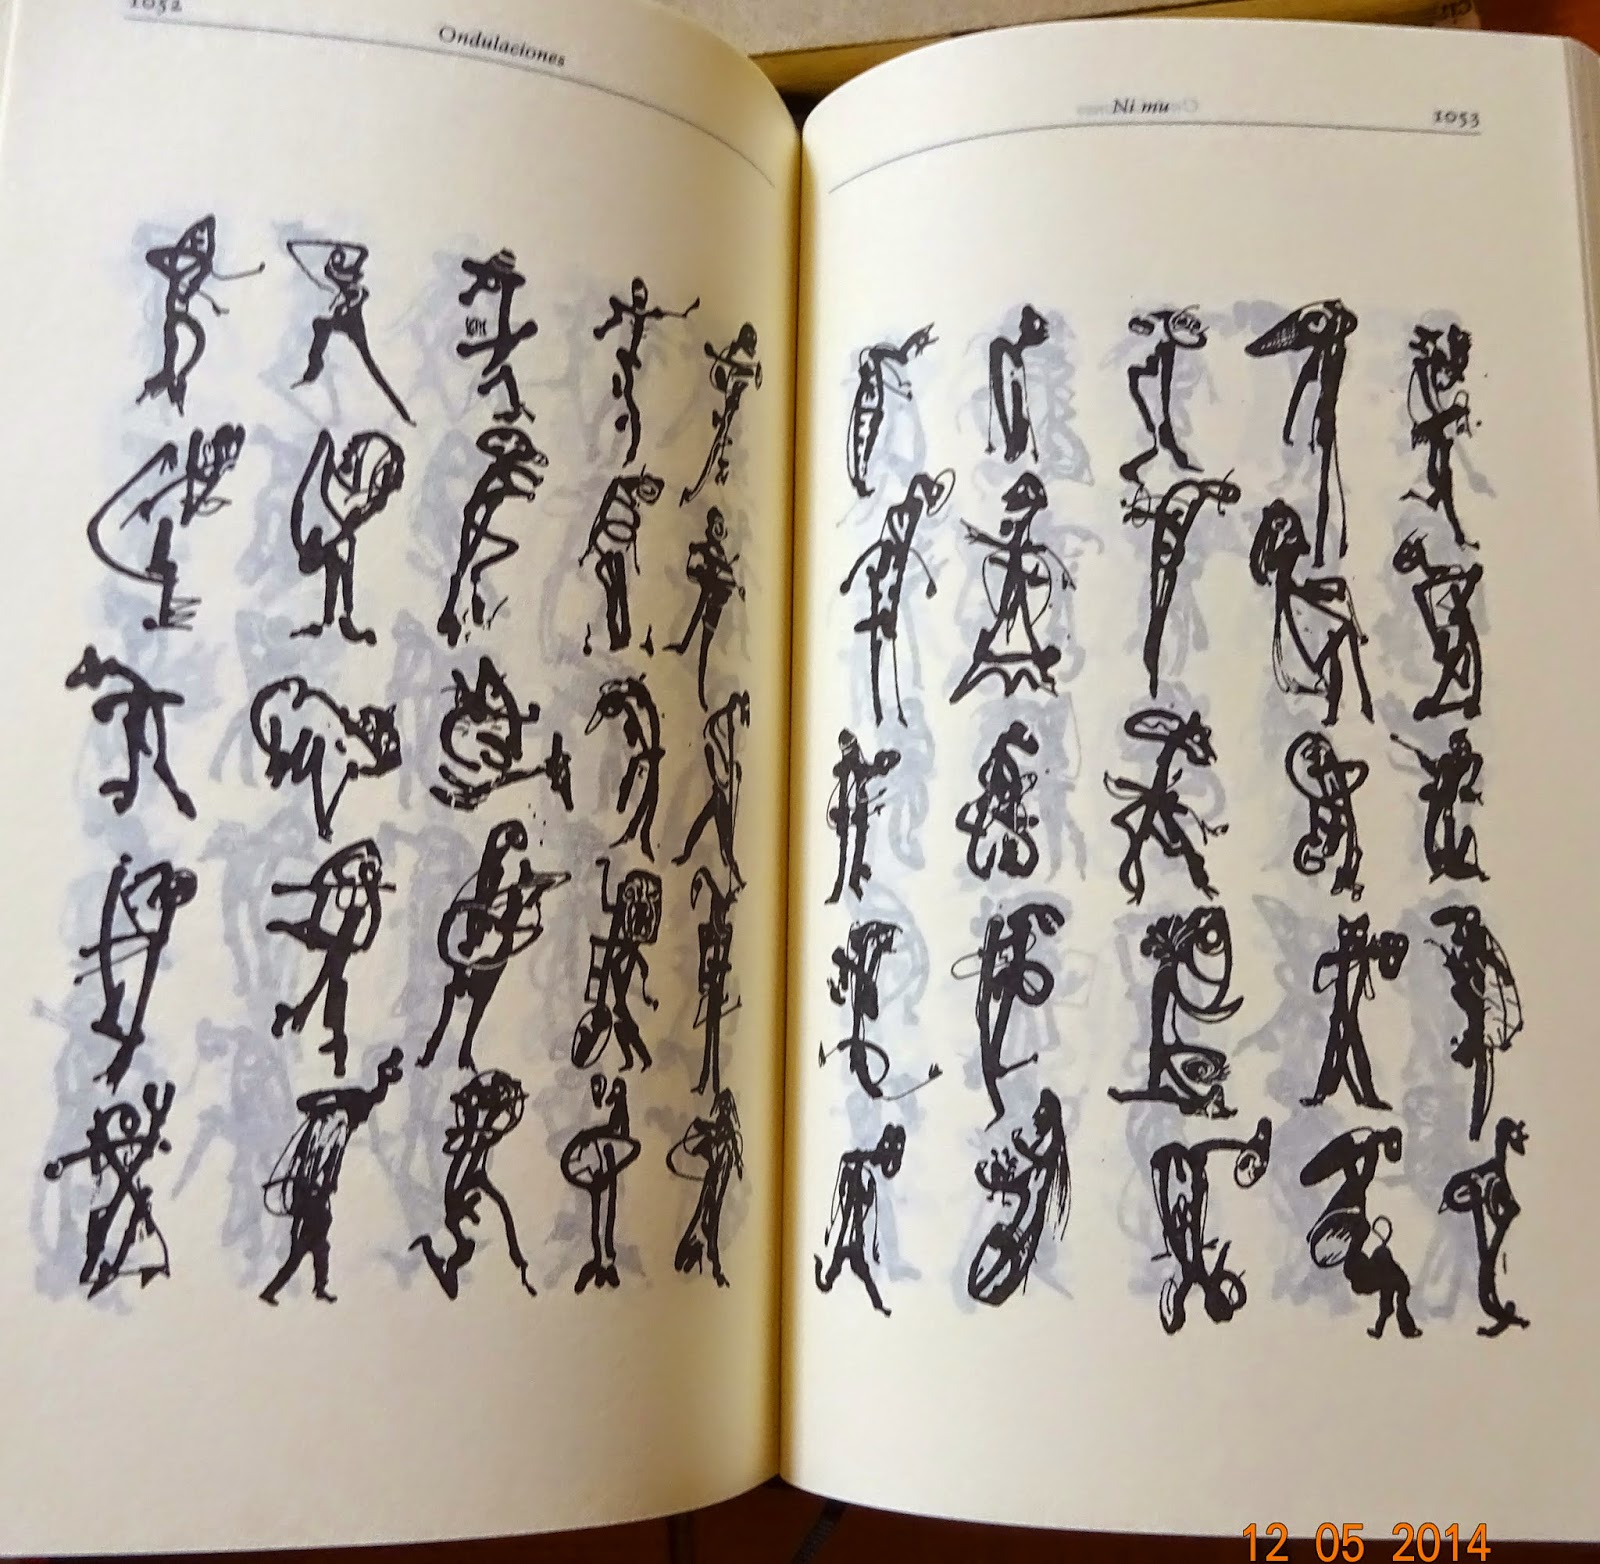 1052
Ondulaciones
Ni mu
1053
12 05 2014